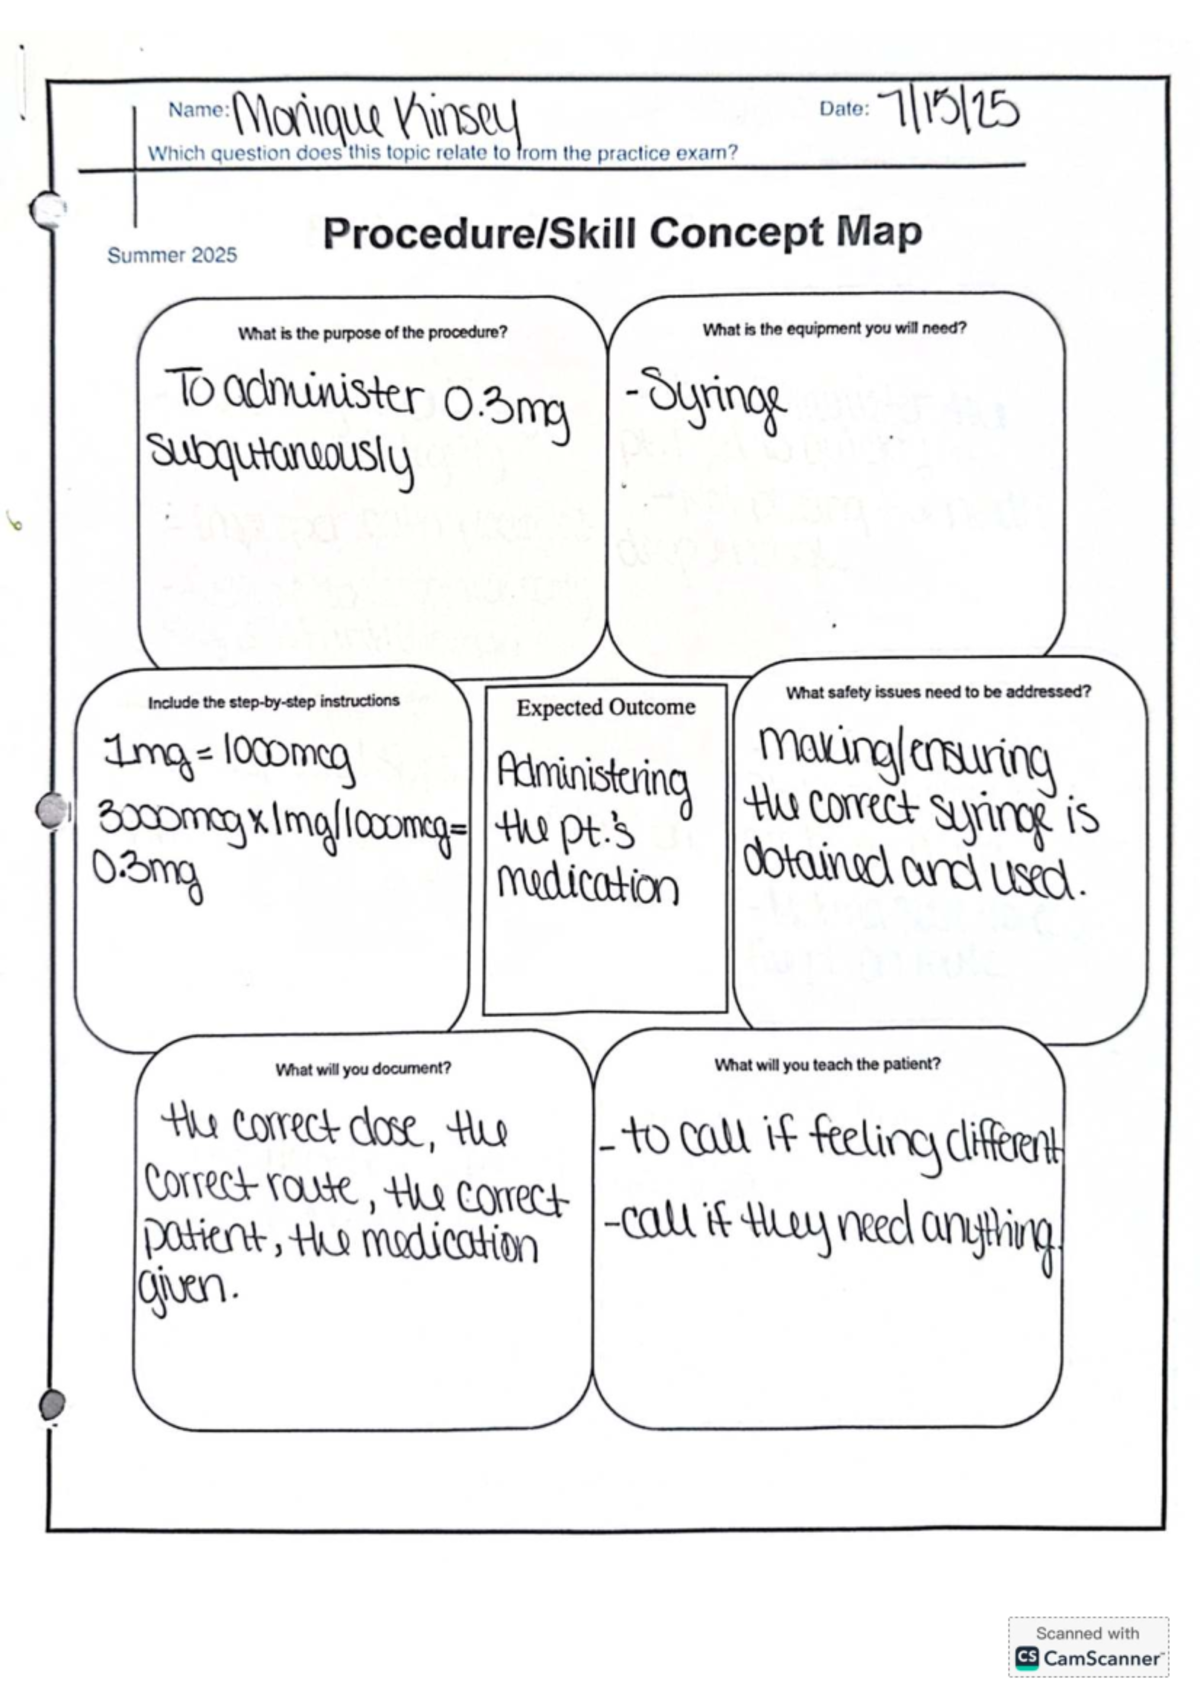 Name: Monique Kinsey Date: 7/15/25
Which question does this topic relate to from the practice exam?
Summer 2025
Procedure/Skill Concept Map
What is the purpose of the procedure?
To administer 0.3mg
subqutaneously
What is the equipment you will need?
-Syringe
Include the step-by-step instructions
1mg = 1000mcg
3000mcg x 1mg/1000mcg=
0.3mg
Expected Outcome
Administering
the pt.'s
medication
What safety issues need to be addressed?
making/ensuring
the correct syringe is
obtained and used.
What will you document?
the correct dose, the
correct route, the correct
patient, the medication
given.
What will you teach the patient?
- to call if feeling different
-call if they need anything.
Scanned with
CS CamScanner